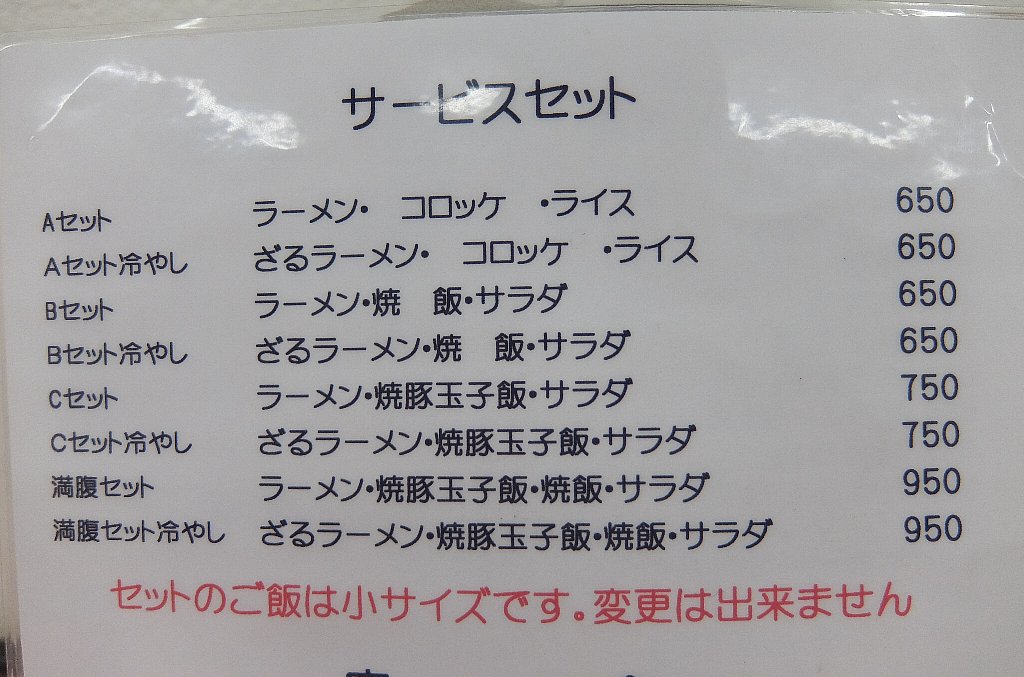 サービスセット
Aセット ラーメン・ コロッケ ・ライス 650
Aセット冷やし ざるラーメン・ コロッケ ・ライス 650
Bセット ラーメン・焼 飯・サラダ 650
Bセット冷やし ざるラーメン・焼 飯・サラダ 650
Cセット ラーメン・焼豚玉子飯・サラダ 750
Cセット冷やし ざるラーメン・焼豚玉子飯・サラダ 750
満腹セット ラーメン・焼豚玉子飯・焼飯・サラダ 950
満腹セット冷やし ざるラーメン・焼豚玉子飯・焼飯・サラダ 950
セットのご飯は小サイズです。変更は出来ません